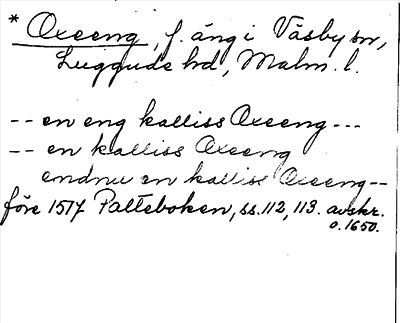 * Oxeeng, f. äng i Väsby sn,
Luggude hd, Malm. l.
-- en eng kalliss Oxeeng ---
-- en kalliss Oxeeng
endnu en kalliss Oxeeng--
före 1517 Palteboken, ss. 112, 113. avskr.
o. 1650.